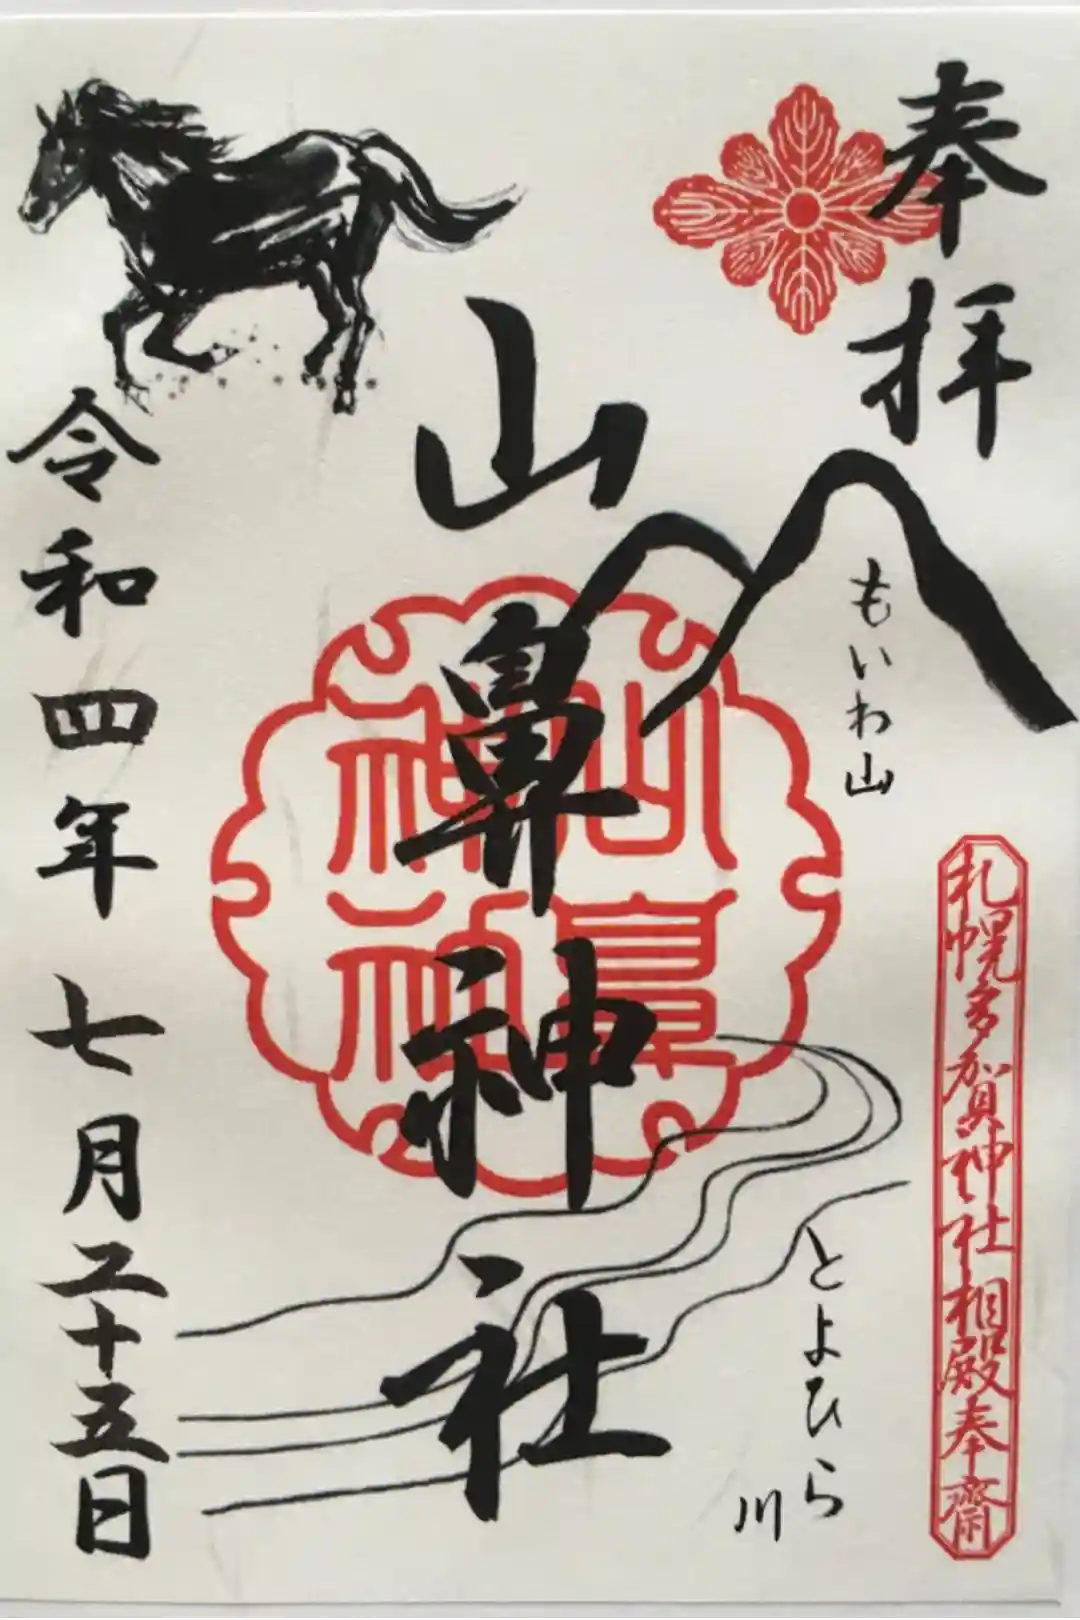 奉拝
もいわ山
札幌多賀神社相殿奉齋
山鼻神社
山鼻
神社
とよひら
川
令和四年 七月二十五日